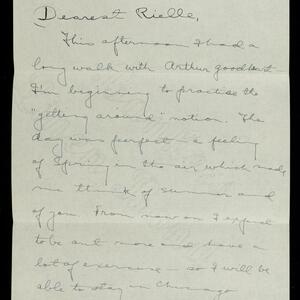 Dearest Rielle,
This afternoon I had a
long walk with Arthur Goodhart
I'm beginning to practise the
"getting around" notion. The
day was perfect – a feeling
of Spring in the air which made
me think of summer and
of you. From now on I expect
to be out more and have a
lot of exercise – so I will be
able to stay in Chicago